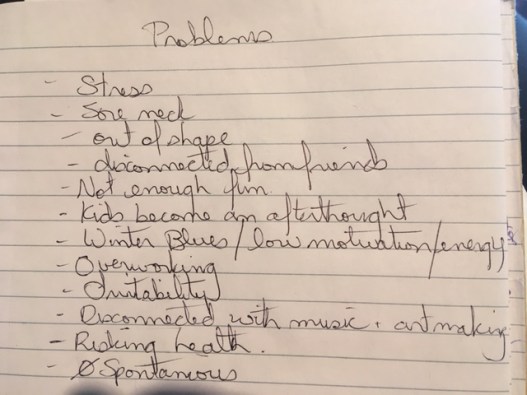 Problems
- Stress
- Sore neck
- out of shape
- disconnected from friends
- Not enough fun
- Kids become an afterthought
- Winter Blues / low motivation/energy
- Overworking
- Irritability
- Disconnected with music + art making
- Risking health.
- Ø Spontaneous